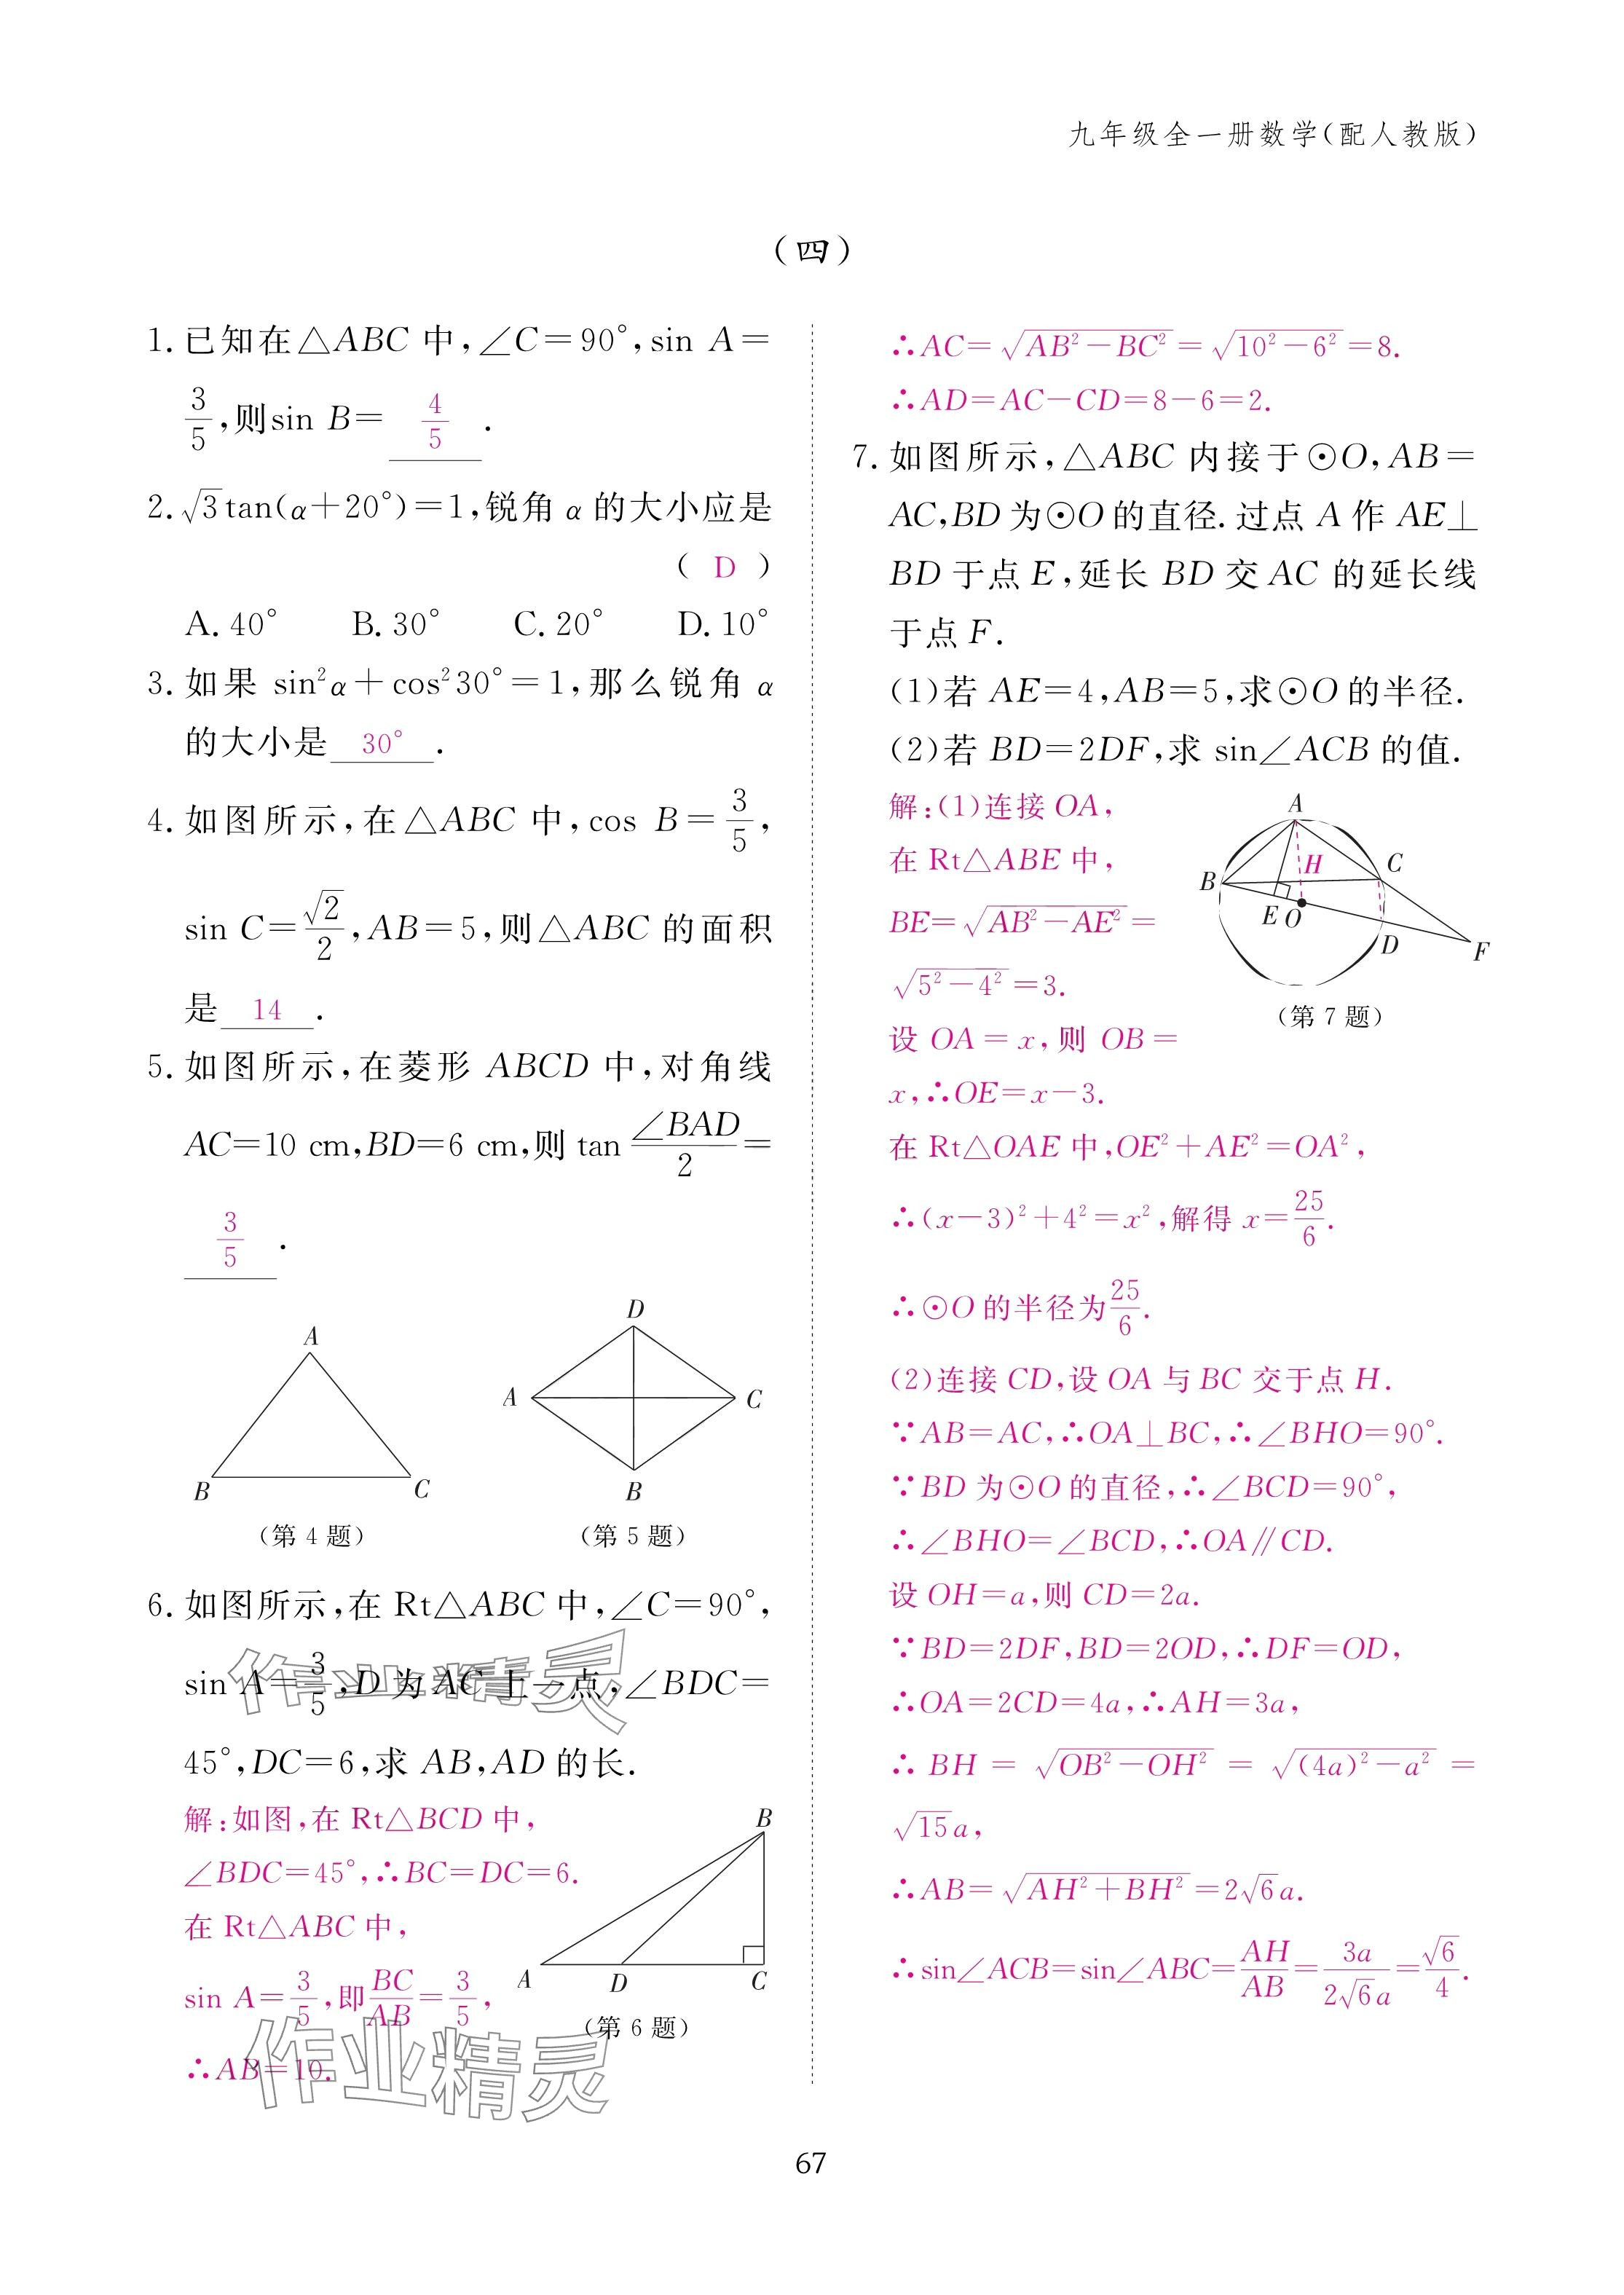 九年级全一册数学(配人教版)
(四)
1. 已知在△ABC 中,∠C=90°,sin A=
3/5,则sin B= 4/5 .
2. √3tan(α+20°)=1,锐角 α 的大小应是
( D )
A. 40° B. 30° C. 20° D. 10°
3. 如果 sin²α+cos²30°=1,那么锐角 α
的大小是 30° .
4. 如图所示,在△ABC 中,cos B=3/5,
sin C=√2/2,AB=5,则△ABC 的面积
是 14 .
5. 如图所示,在菱形 ABCD 中,对角线
AC=10 cm,BD=6 cm,则 tan ∠BAD/2=
3/5 .
A
B
C
(第 4 题)
D
A
C
B
(第 5 题)
6. 如图所示,在 Rt△ABC 中,∠C=90°,
sin A=3/5,D 为 AC 上一点,∠BDC=
45°,DC=6,求 AB,AD 的长.
解:如图,在 Rt△BCD 中,
∠BDC=45°,∴BC=DC=6.
在 Rt△ABC 中,
sin A=3/5,即BC/AB=3/5,
∴AB=10.
B
A
D
C
(第 6 题)
作业精灵
作业精灵
∴AC=√(AB²-BC²)=√(10²-6²)=8.
∴AD=AC-CD=8-6=2.
7. 如图所示,△ABC 内接于⊙O,AB=
AC,BD为⊙O的直径.过点 A 作 AE⊥
BD 于点 E,延长 BD 交 AC 的延长线
于点 F.
(1)若 AE=4,AB=5,求⊙O 的半径.
(2)若 BD=2DF,求 sin∠ACB 的值.
解:(1)连接 OA,
在 Rt△ABE 中,
BE=√(AB²-AE²)=
√(5²-4²)=3.
设 OA=x,则 OB=
x,∴OE=x-3.
A
H
C
B
E O
D
F
(第 7 题)
在 Rt△OAE 中,OE²+AE²=OA²,
∴(x-3)²+4²=x²,解得 x=25/6.
∴⊙O 的半径为25/6.
(2)连接 CD,设 OA 与 BC 交于点 H.
∵AB=AC,∴OA⊥BC,∴∠BHO=90°.
∵BD 为⊙O 的直径,∴∠BCD=90°,
∴∠BHO=∠BCD,∴OA∥CD.
设 OH=a,则 CD=2a.
∵BD=2DF,BD=2OD,∴DF=OD,
∴OA=2CD=4a,∴AH=3a,
∴BH=√(OB²-OH²)=√((4a)²-a²)=
√15a,
∴AB=√(AH²+BH²)=2√6a.
∴sin∠ACB=sin∠ABC=AH/AB=3a/2√6a=√6/4.
67